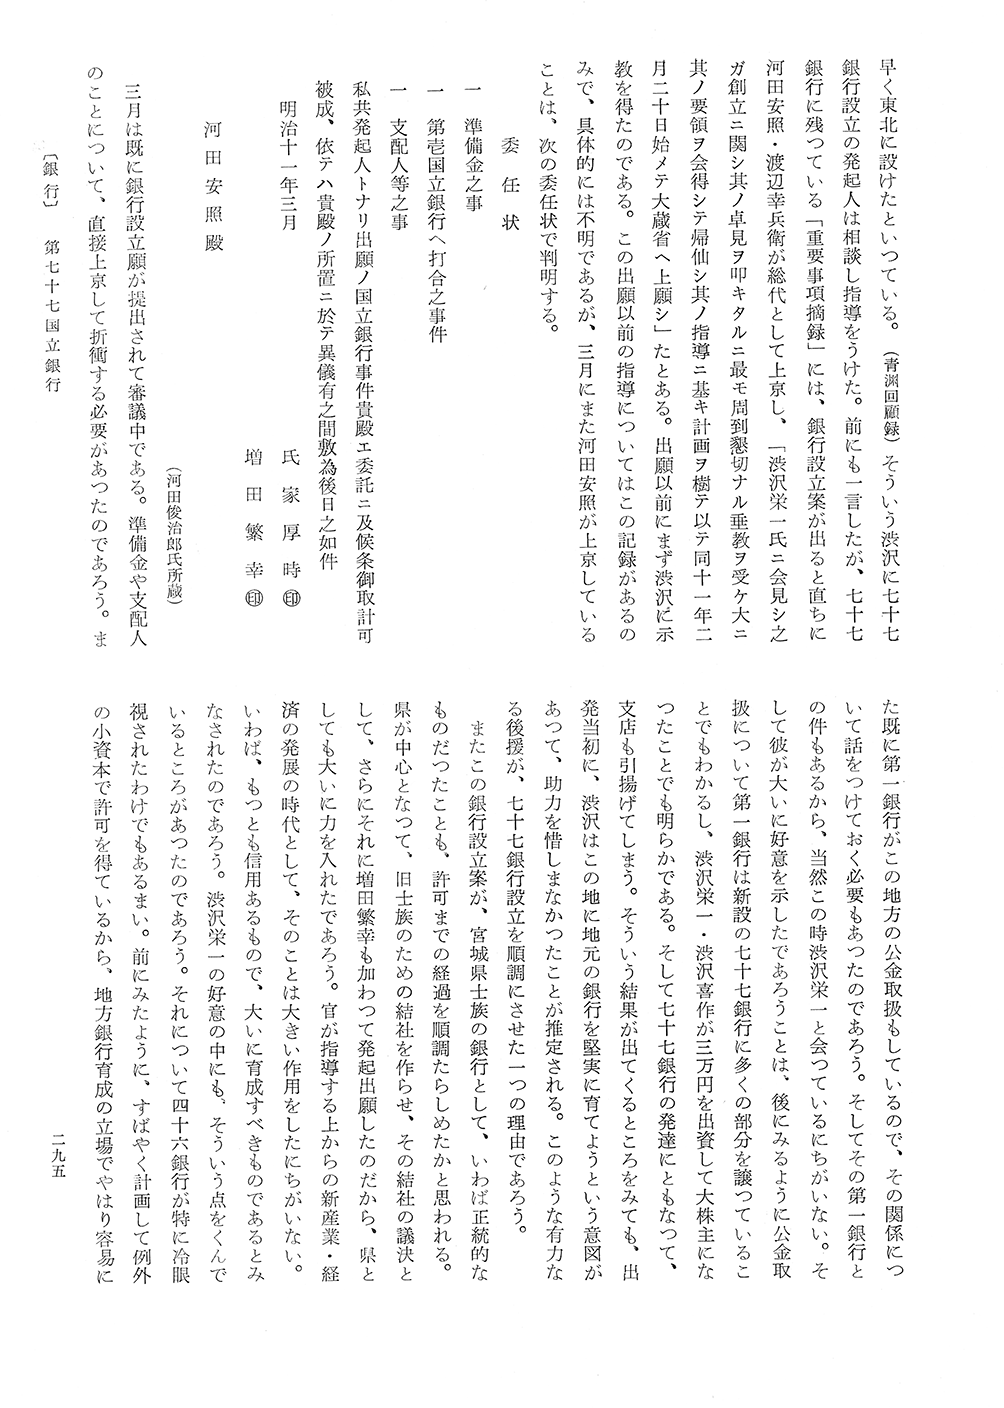 早く東北に設けたといつている。（青淵回顧録）そういう渋沢に七十七
銀行設立の発起人は相談し指導をうけた。前にも一言したが、七十七
銀行に残つている「重要事項摘録」には、銀行設立案が出ると直ちに
河田安照・渡辺幸兵衛が総代として上京し、「渋沢栄一氏ニ会見シ之
ガ創立ニ関シ其ノ卓見ヲ叩キタルニ最モ周到懇切ナル垂教ヲ受ケ大ニ
其ノ要領ヲ会得シテ帰仙シ其ノ指導ニ基キ計画ヲ樹テ以テ同十一年二
月二十日始メテ大蔵省ヘ上願シ」たとある。出願以前にまず渋沢に示
教を得たのである。この出願以前の指導についてはこの記録があるの
みで、具体的には不明であるが、三月にまた河田安照が上京している
ことは、次の委任状で判明する。
委任状
一　準備金之事
一　第壱国立銀行ヘ打合之事件
一　支配人等之事
私共発起人トナリ出願ノ国立銀行事件貴殿エ委託ニ及候条御取計可
被成、依テハ貴殿ノ所置ニ於テ異儀有之間敷為後日之如件
明治十一年三月
氏家厚時㊞
増田繁幸㊞
河田安照殿
（河田俊治郎氏所蔵）
三月は既に銀行設立願が提出されて審議中である。準備金や支配人
のことについて、直接上京して折衝する必要があつたのであろう。ま
た既に第一銀行がこの地方の公金取扱もしているので、その関係につ
いて話をつけておく必要もあつたのであろう。そしてその第一銀行と
の件もあるから、当然この時渋沢栄一と会つているにちがいない。そ
して彼が大いに好意を示したであろうことは、後にみるように公金取
扱について第一銀行は新設の七十七銀行に多くの部分を譲つているこ
とでもわかるし、渋沢栄一・渋沢喜作が三万円を出資して大株主にな
つたことでも明らかである。そして七十七銀行の発達にともなつて、
支店も引揚げてしまう。そういう結果が出てくるところをみても、出
発当初に、渋沢はこの地に地元の銀行を堅実に育てようという意図が
あつて、助力を惜しまなかつたことが推定される。このような有力な
る後援が、七十七銀行設立を順調にさせた一つの理由であろう。
またこの銀行設立案が、宮城県士族の銀行として、いわば正統的な
ものだつたことも、許可までの経過を順調たらしめたかと思われる。
県が中心となつて、旧士族のための結社を作らせ、その結社の議決と
して、さらにそれに増田繁幸も加わつて発起出願したのだから、県と
しても大いに力を入れたであろう。官が指導する上からの新産業・経
済の発展の時代として、そのことは大きい作用をしたにちがいない。
いわば、もつとも信用あるもので、大いに育成すべきものであるとみ
なされたのであろう。渋沢栄一の好意の中にも、そういう点をくんで
いるところがあつたのであろう。それについて四十六銀行が特に冷眼
視されたわけでもあるまい。前にみたように、すばやく計画して例外
の小資本で許可を得ているから、地方銀行育成の立場でやはり容易に
〔銀行〕　第七十七国立銀行
二九五